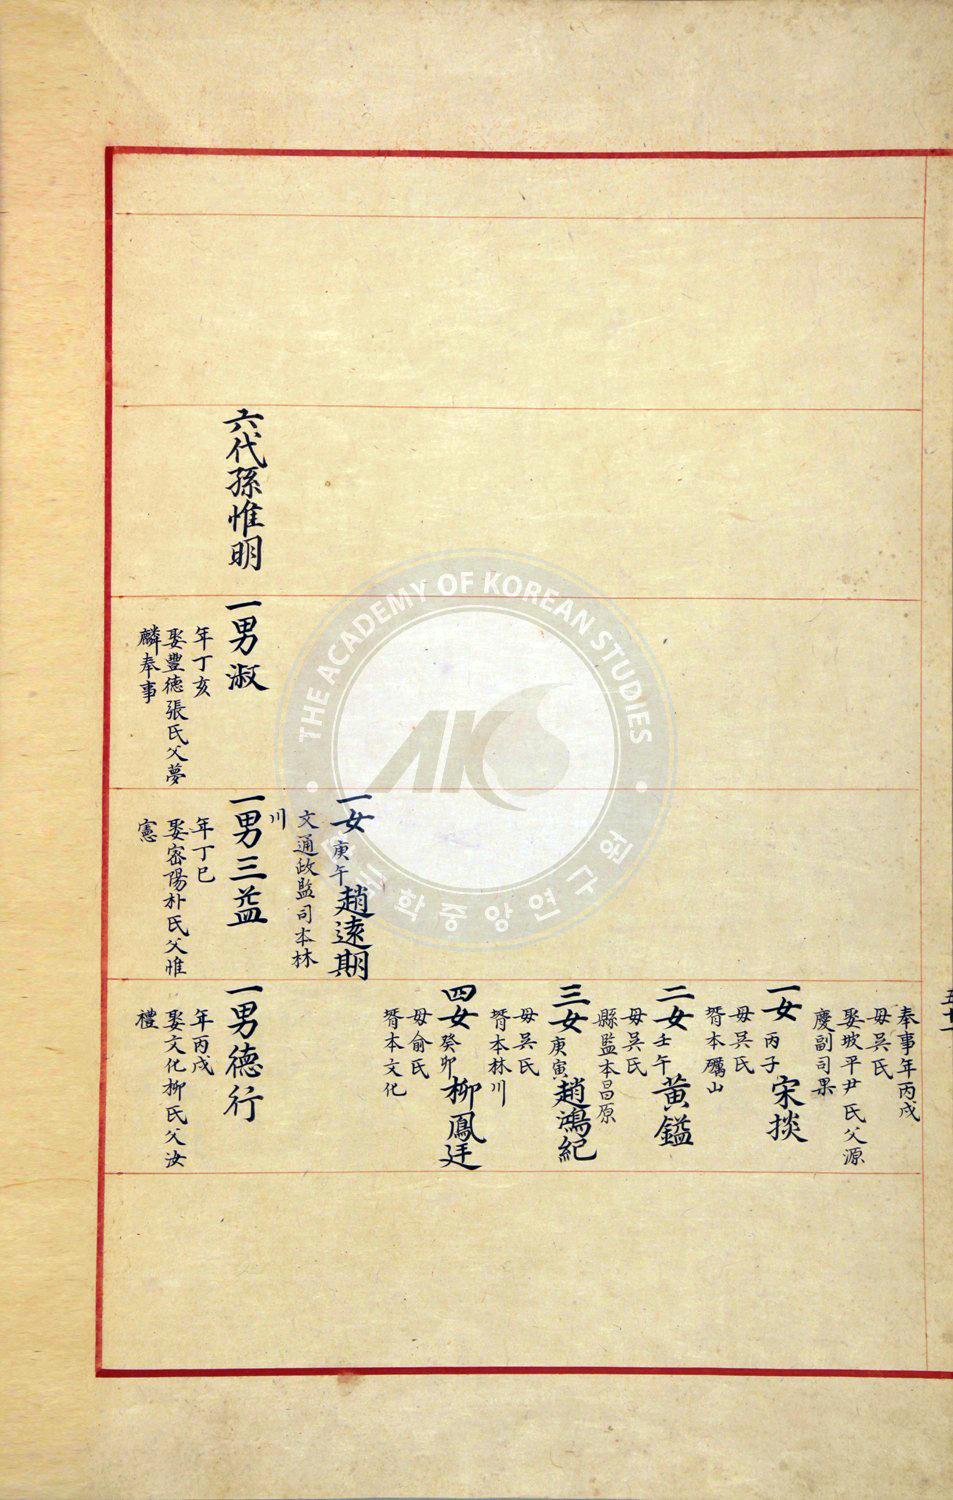 奉事年丙戌
母吳氏
娶坡平尹氏父源
慶副司果
一女丙子宋掞
母吳氏
壻本礪山
二女壬午黃鎰
母吳氏
縣監本昌原
三女庚寅趙鴻紀
母吳氏
壻本林川
四女癸卯柳鳳廷
母俞氏
壻本文化
一女庚午趙遠期
文通政監司本林
川
六代孫惟明
一男淑
年丁亥
娶豐德張氏父夢
麟奉事
一男三益
年丁巳
娶密陽朴氏父惟
憲
一男德行
年丙戌
娶文化柳氏父汝
禮
THE ACADEMY OF KOREAN STUDIES
AKS
한국학중앙연구원